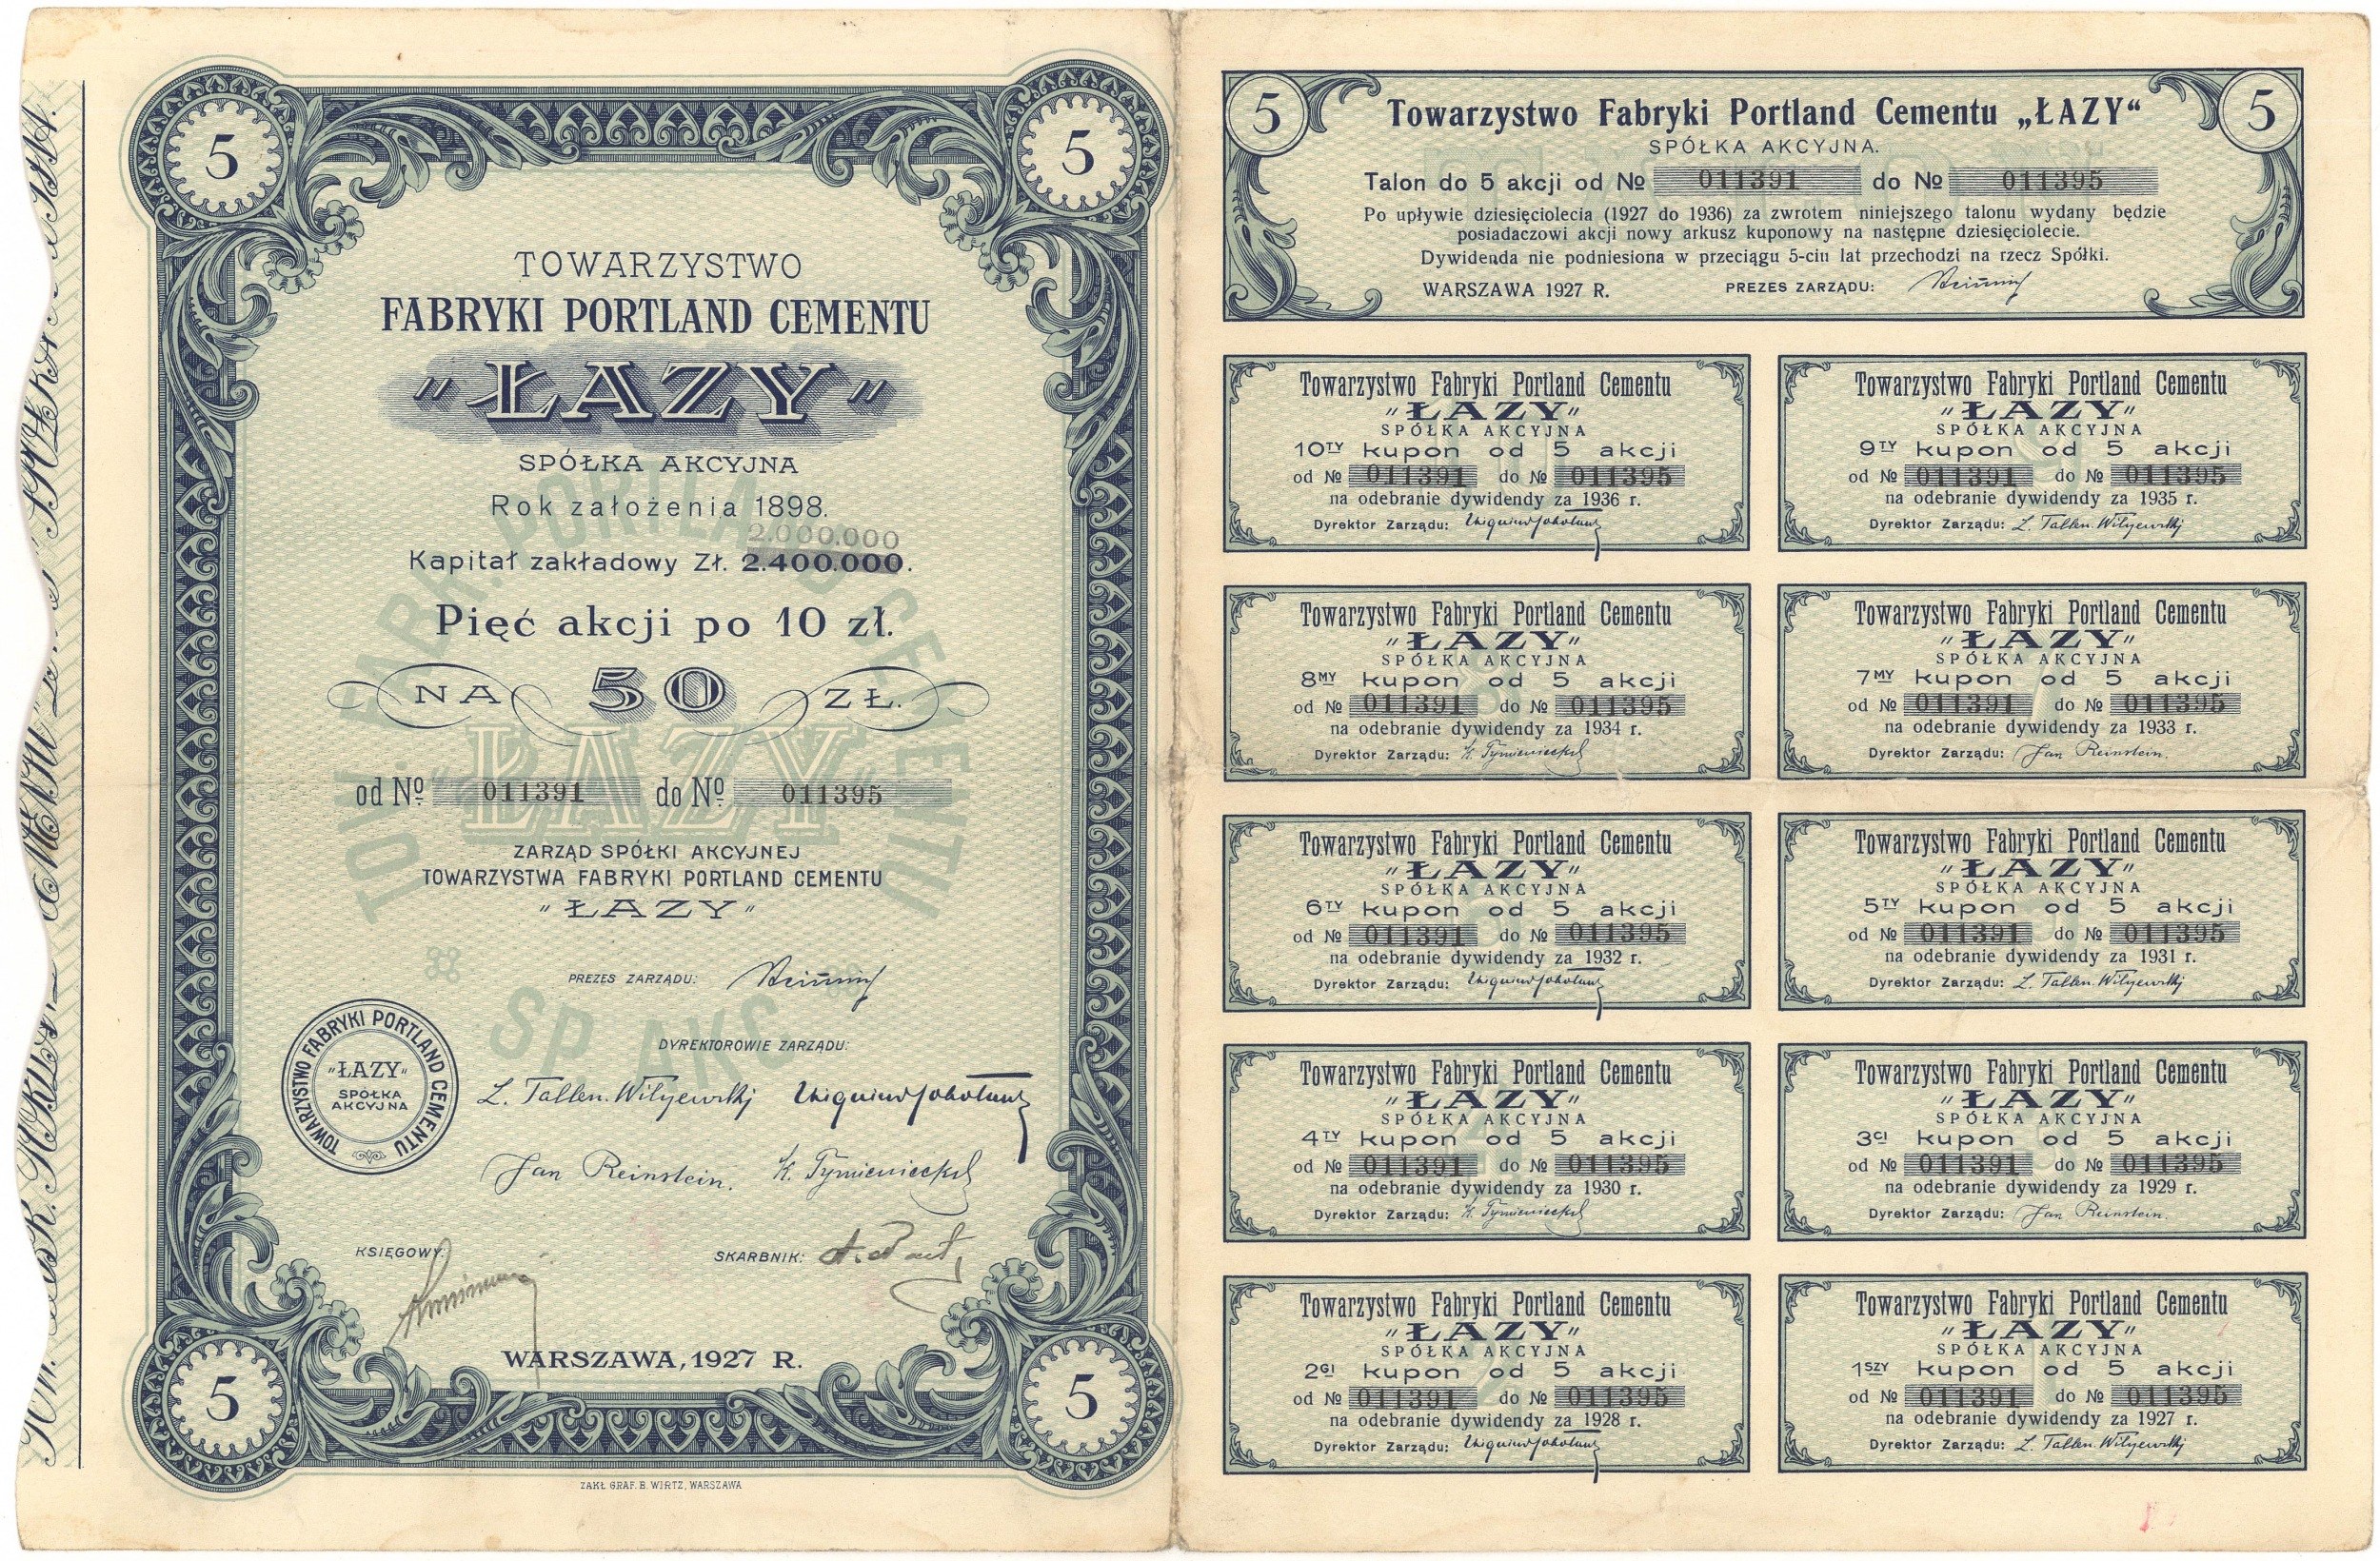 5
5
TOWARZYSTWO
FABRYKI PORTLAND CEMENTU
"ŁAZY"
SPÓŁKA AKCYJNA
Rok założenia 1898.
2.000.000
Kapitał zakładowy Zł. 2.400.000.
Pięć akcji po 10 zł.
NA 50 ZŁ.
od № 011391 do № 011395
ZARZĄD SPÓŁKI AKCYJNEJ
TOWARZYSTWA FABRYKI PORTLAND CEMENTU
"ŁAZY"
PREZES ZARZĄDU:
DYREKTOROWIE ZARZĄDU:
TOWARZYSTWO FABRYKI PORTLAND CEMENTU
"ŁAZY"
SPÓŁKA
AKCYJNA
Jan Reinstein. K. Tymieniecki
KSIĘGOWY:
SKARBNIK:
WARSZAWA, 1927 R.
5
5
ZAKŁ. GRAF. B. WIRTZ, WARSZAWA
TOW. FABR. PORTLAND CEMENTU
ŁAZY
SP. AKC.
5
5
Towarzystwo Fabryki Portland Cementu „ŁAZY“
SPÓŁKA AKCYJNA.
Talon do 5 akcji od № 011391 do № 011395
Po upływie dziesięciolecia (1927 do 1936) za zwrotem niniejszego talonu wydany będzie
posiadaczowi akcji nowy arkusz kuponowy na następne dziesięciolecie.
Dywidenda nie podniesiona w przeciągu 5-ciu lat przechodzi na rzecz Spółki.
WARSZAWA 1927 R. PREZES ZARZĄDU:
Towarzystwo Fabryki Portland Cementu
"ŁAZY"
SPÓŁKA AKCYJNA
10TY kupon od 5 akcji
od № 011391 do № 011395
na odebranie dywidendy za 1936 r.
Dyrektor Zarządu:
Towarzystwo Fabryki Portland Cementu
"ŁAZY"
SPÓŁKA AKCYJNA
9TY kupon od 5 akcji
od № 011391 do № 011395
na odebranie dywidendy za 1935 r.
Dyrektor Zarządu:
Towarzystwo Fabryki Portland Cementu
"ŁAZY"
SPÓŁKA AKCYJNA
8MY kupon od 5 akcji
od № 011391 do № 011395
na odebranie dywidendy za 1934 r.
Dyrektor Zarządu: K. Tymieniecki
Towarzystwo Fabryki Portland Cementu
"ŁAZY"
SPÓŁKA AKCYJNA
7MY kupon od 5 akcji
od № 011391 do № 011395
na odebranie dywidendy za 1933 r.
Dyrektor Zarządu: Jan Reinstein.
Towarzystwo Fabryki Portland Cementu
"ŁAZY"
SPÓŁKA AKCYJNA
6TY kupon od 5 akcji
od № 011391 do № 011395
na odebranie dywidendy za 1932 r.
Dyrektor Zarządu:
Towarzystwo Fabryki Portland Cementu
"ŁAZY"
SPÓŁKA AKCYJNA
5TY kupon od 5 akcji
od № 011391 do № 011395
na odebranie dywidendy za 1931 r.
Dyrektor Zarządu:
Towarzystwo Fabryki Portland Cementu
"ŁAZY"
SPÓŁKA AKCYJNA
4TY kupon od 5 akcji
od № 011391 do № 011395
na odebranie dywidendy za 1930 r.
Dyrektor Zarządu: K. Tymieniecki
Towarzystwo Fabryki Portland Cementu
"ŁAZY"
SPÓŁKA AKCYJNA
3CI kupon od 5 akcji
od № 011391 do № 011395
na odebranie dywidendy za 1929 r.
Dyrektor Zarządu: Jan Reinstein.
Towarzystwo Fabryki Portland Cementu
"ŁAZY"
SPÓŁKA AKCYJNA
2GI kupon od 5 akcji
od № 011391 do № 011395
na odebranie dywidendy za 1928 r.
Dyrektor Zarządu:
Towarzystwo Fabryki Portland Cementu
"ŁAZY"
SPÓŁKA AKCYJNA
1SZY kupon od 5 akcji
od № 011391 do № 011395
na odebranie dywidendy za 1927 r.
Dyrektor Zarządu: